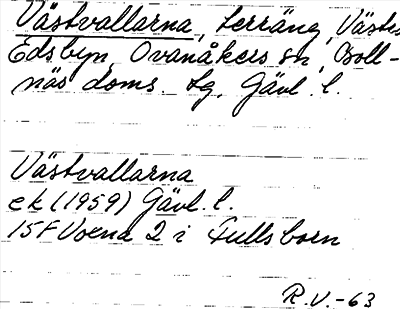 Västvallarna, terräng, Västra
Edsbyn, Ovanåkers sn, Boll-
näs doms. lg, Gävl. l.
Västvallarna
ek (1959) Gävl. l.
15F Voxna 2 i
R.V.-63